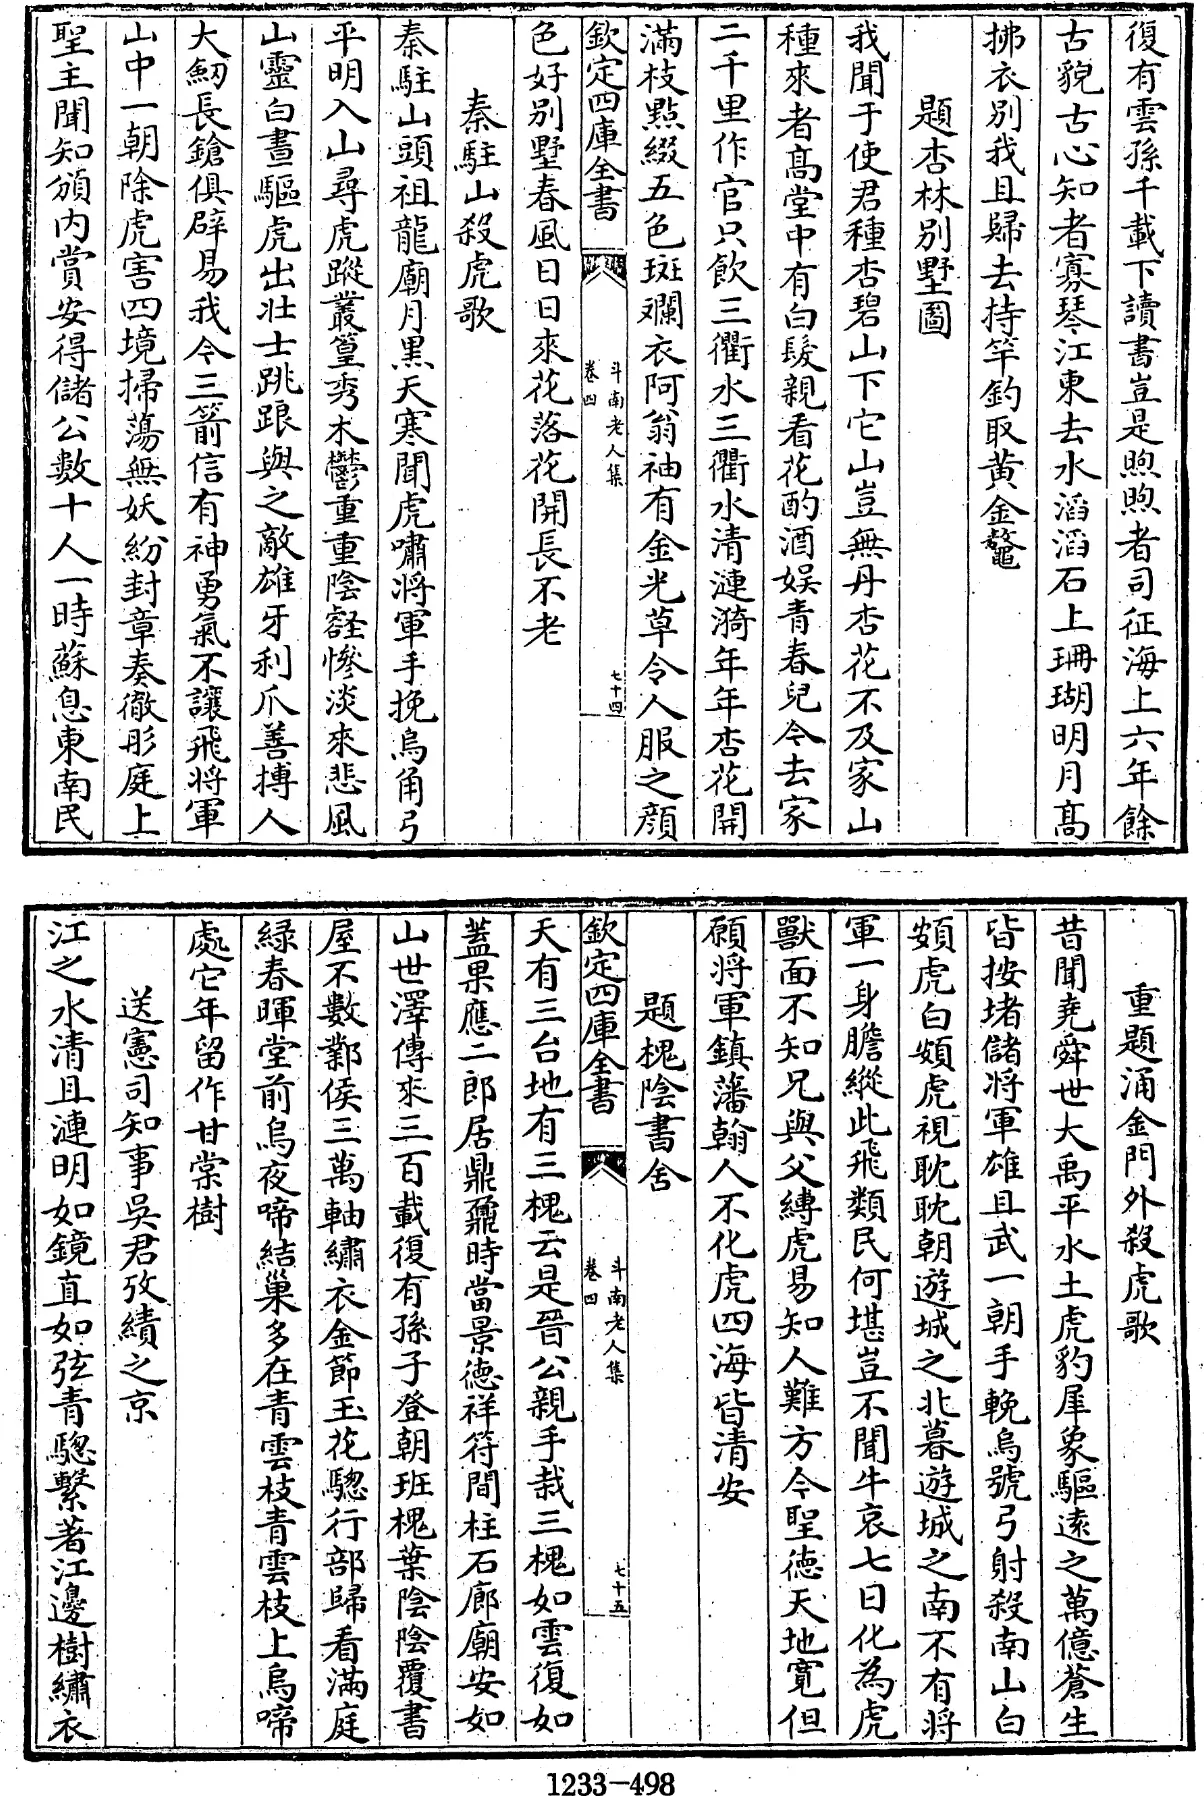 復有雲孫千載下讀書豈是喣喣者司征海上六年餘
古貌古心知者寡琴江東去水滔滔石上珊瑚明月髙
拂衣别我且歸去持竿釣取黄金鼇
題杏林别墅圖
我聞于使君種杏碧山下它山豈無丹杏花不及家山
種來者髙堂中有白髮親看花酌酒娱青春兒令去家
二千里作官只飲三衢水三衢水清漣漪年年杏花開
滿枝點綴五色斑斕衣阿翁袖有金光草令人服之顔
欽定四庫全書
斗南老人集
卷四
七十四
色好别墅春風日日來花落花開長不老
秦駐山殺虎歌
秦駐山頭祖龍廟月黒天寒聞虎嘯將軍手挽烏角弓
平明入山尋虎蹤叢篁秀木鬱重重陰壑慘淡來悲風
山靈白晝驅虎出壯士跳踉與之敵雄牙利爪善搏人
大劒長鎗俱辟易我令三箭信有神勇氣不讓飛將軍
山中一朝除虎害四境掃蕩無妖紛封章奏徹彤庭上
聖主聞知頒内賞安得儲公數十人一時蘇息東南民
重題涌金門外殺虎歌
昔聞堯舜世大禹平水土虎豹犀象驅逺之萬億蒼生
皆按堵儲將軍雄且武一朝手輓烏號弓射殺南山白
頰虎白頰虎視耽耽朝遊城之北暮遊城之南不有將
軍一身膽縱此飛類民何堪豈不聞牛哀七日化為虎
獸面不知兄與父縛虎易知人難方今聖徳天地寛但
願將軍鎮藩翰人不化虎四海皆清安
題槐陰書舍
欽定四庫全書
斗南老人集
卷四
七十五
天有三台地有三槐云是晉公親手栽三槐如雲復如
葢果應二郎居鼎鼐時當景徳祥符間柱石廊廟安如
山世澤傳來三百載復有孫子登朝班槐葉陰陰覆書
屋不數鄴侯三萬軸繡衣金節玉花驄行部歸看滿庭
緑春暉堂前烏夜啼結巢多在青雲枝青雲枝上烏啼
處它年留作甘棠樹
送憲司知事吳君攷績之京
江之水清且漣明如鏡直如弦青驄繫著江邊樹繡衣
1233—498